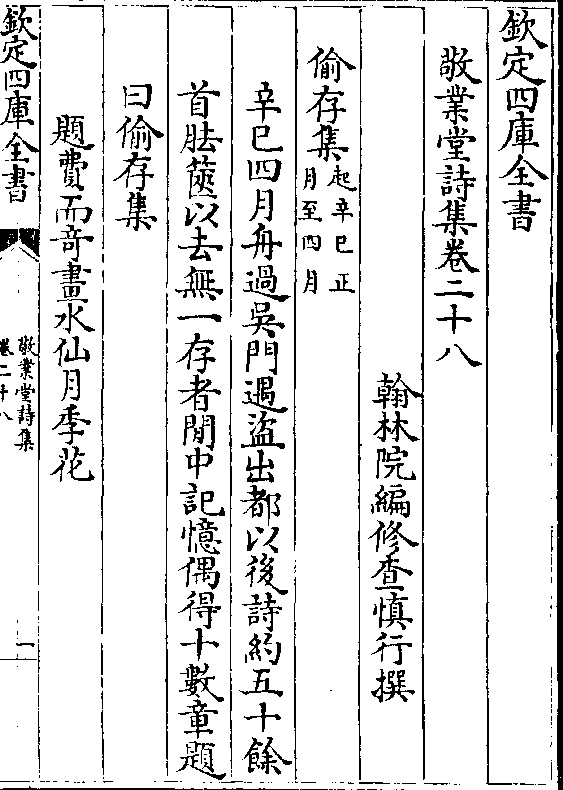 欽定四庫全書
敬業堂詩集卷二十八
翰林院編修查慎行撰
偷存集起辛巳正月至四月
辛巳四月舟過吳門遇盜出都以後詩約五十餘
首胠篋以去無一存者閒中記憶偶得十數章題
曰偷存集
題費而奇畫水仙月季花
欽定四庫全書
敬業堂詩集
卷二十八
一